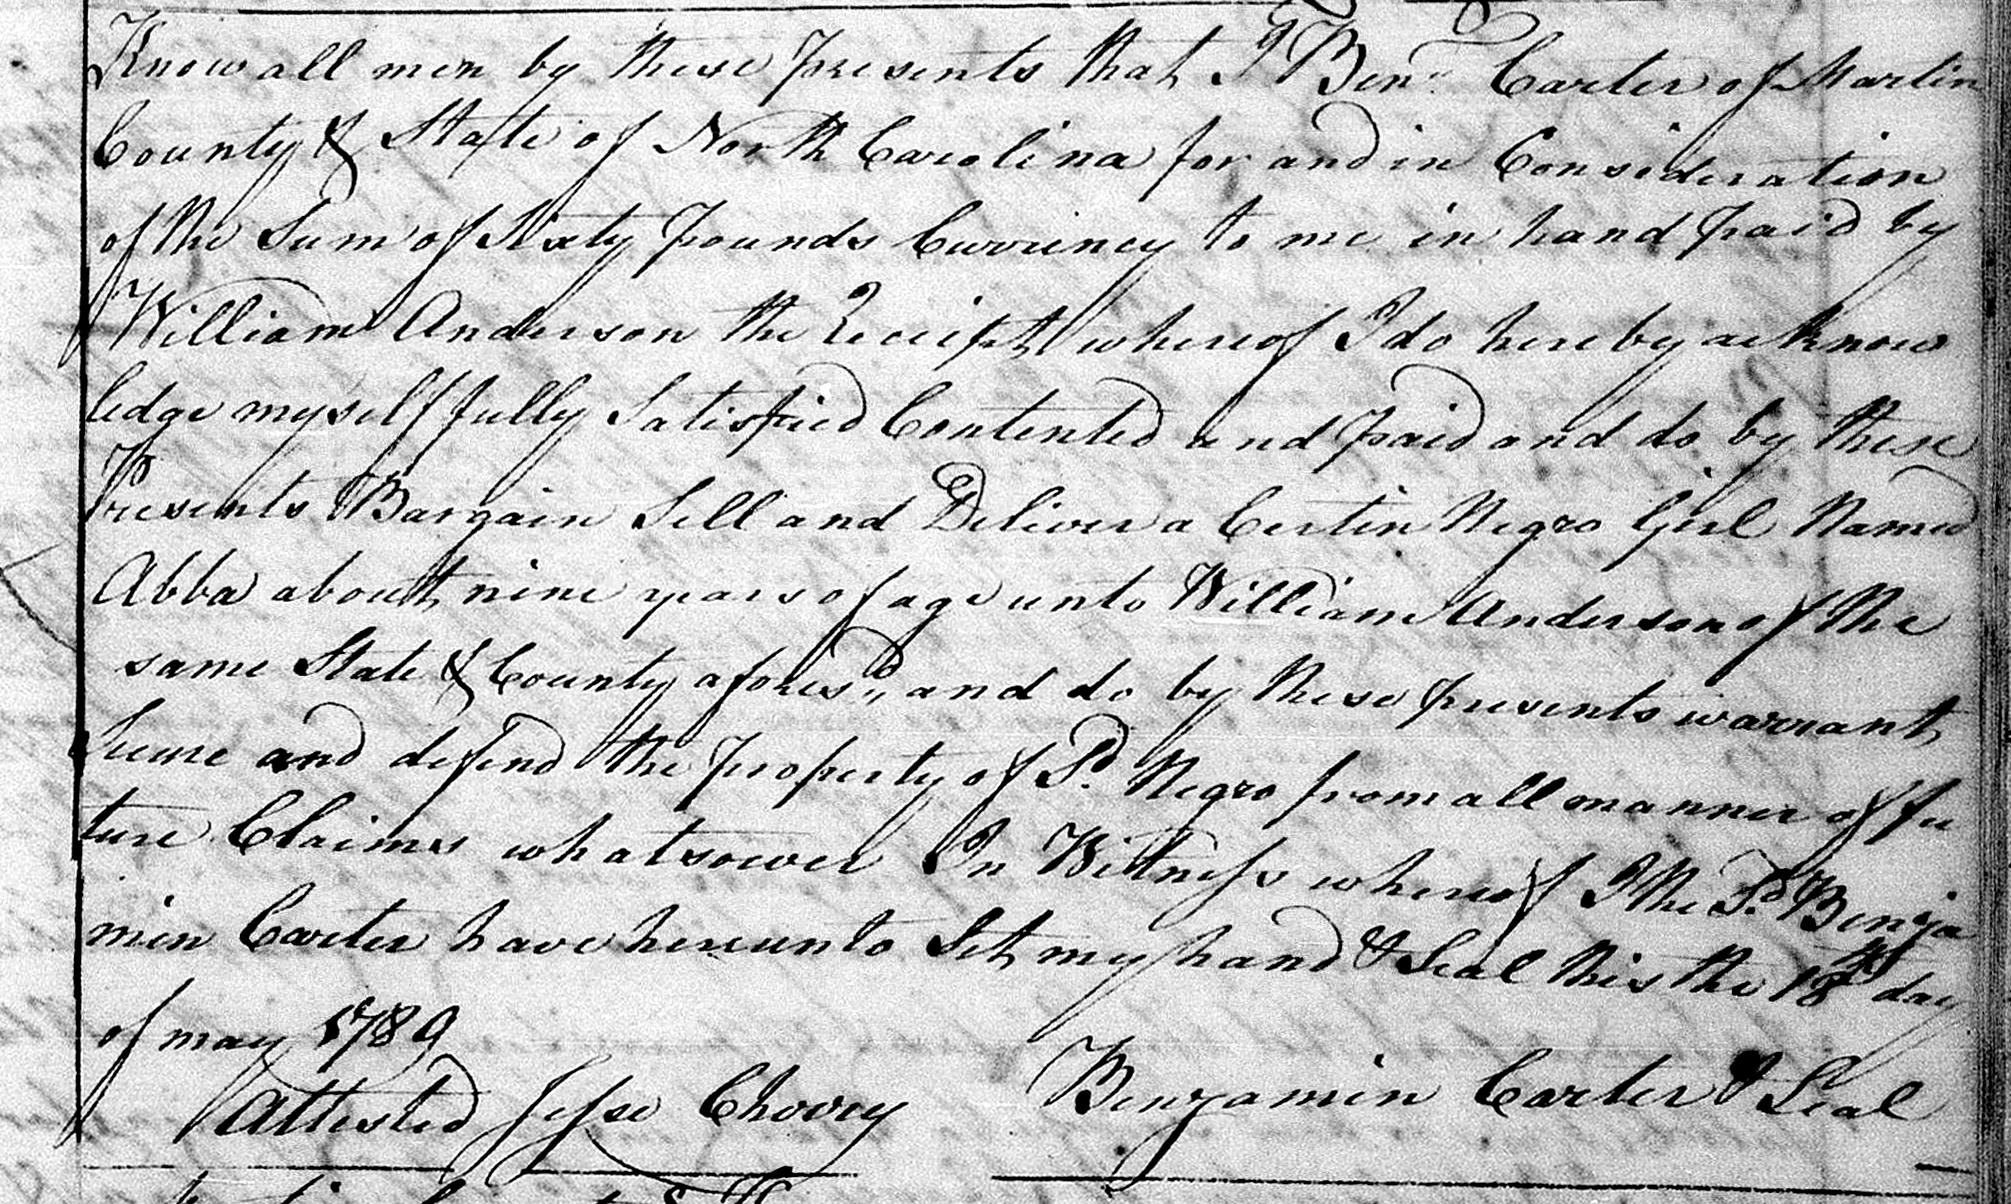 Know all men by these presents that I Benn Carter of Martin
County & State of North Carolina for and in Consideration
of the Sum of Sixty pounds Currency to me in hand paid by
William Anderson the Receipt whereof I do hereby acknow
ledge myself fully Satisfied Contented and paid and do by these
Presents Bargain Sell and Deliver a Certin Negro Girl Named
Abba about nine years of age unto William Anderson of the
same State & County aforesd,, and do by these presents warrant
Secure and defend the property of Sd. Negro from all manner of fu
ture Claims whatsoever In Witness whereof I the Sd. Benja
min Carter have hereunto Set my hand & Seal this the 18th day
of may 1789
Attested Jesse Cherry Benjamin Carter & Seal